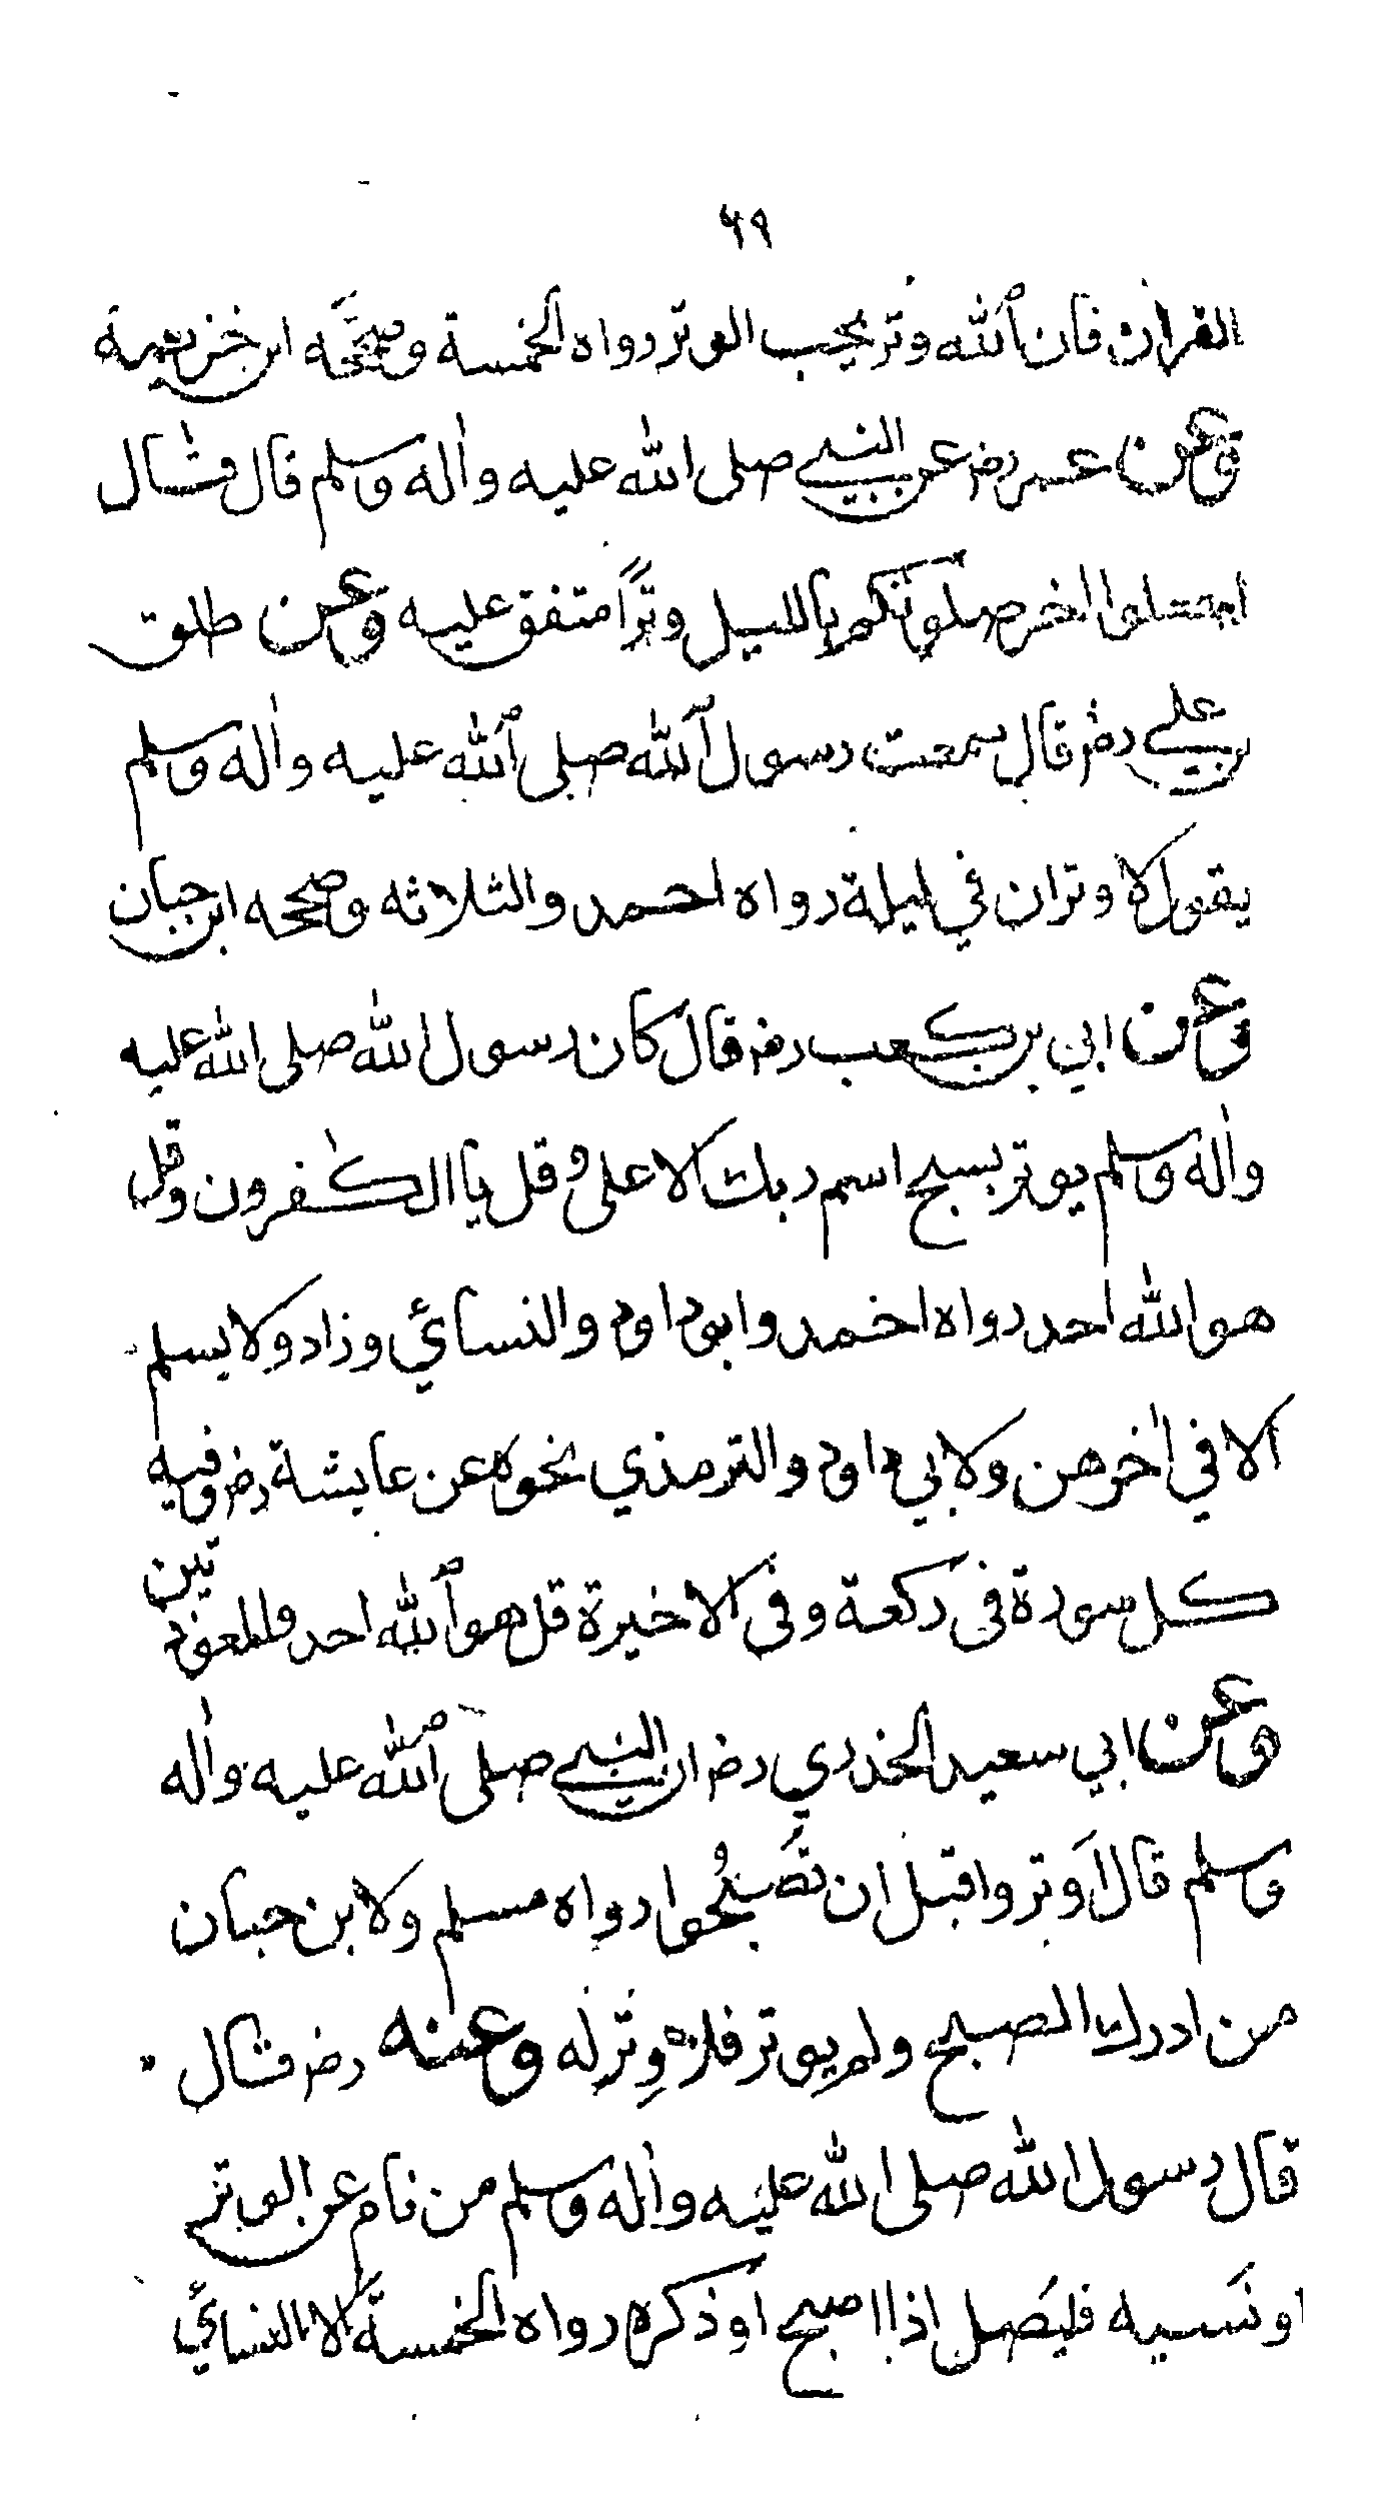 ٤٩
القران فان الله وتر يحب الوتر رواه الخمسة وصححَّه ابن خزيمة
وعن عمر رضر عن النبي صلى الله عليه واٰله وسلم قال قال
اجعلوا اٰخر صلوتكم بالليل وترًا متفق عليه وعن طلق
بن علي رضر قال سمعت رسول الله صلى الله عليه واٰله وسلم
يقول لا وتران في ليلة رواه احمد والثلاثه وصححه ابن حبان
وعن ابي بن كعب رضر قال كان رسول الله صلى الله عليه
واٰله وسلم يوتر بسبح اسم ربك الاعلى وقل يا الكٰفرون وقل
هو الله احد رواه احمد وابو داود والنسائي وزاد ولا يسلم
الا في اٰخرهن ولابي داود والترمذي نحوه عن عايشة رضر وفيه
كل سورة في ركعة وفي الاخيرة قل هو الله احد والمعوذتين
وعن ابي سعيد الخدري رضر ان النبي صلى الله عليه واٰله
وسلم قال اَوتروا قبل ان تصَبُحوا رواه مسلم ولابن حبان
من ادرك الصبح ولم يوتر فلا وِتر له وعنه رضر قال
قال رسول الله صلى الله عليه واٰله وسلم من نام عن الوتر
او نَسيه فليَصل اذا اصبح او ذكره رواه الخمسة الا النسائي